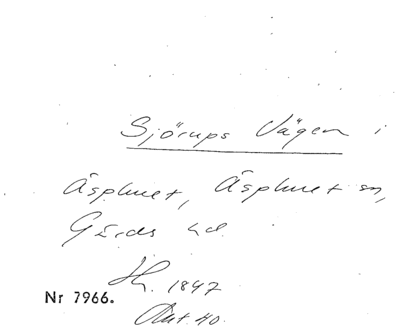 Sjörups Vägen i
Äsphuet, Äsphuet sn,
Gärds hd.
1847
Nr 7966.
Akt. 40.